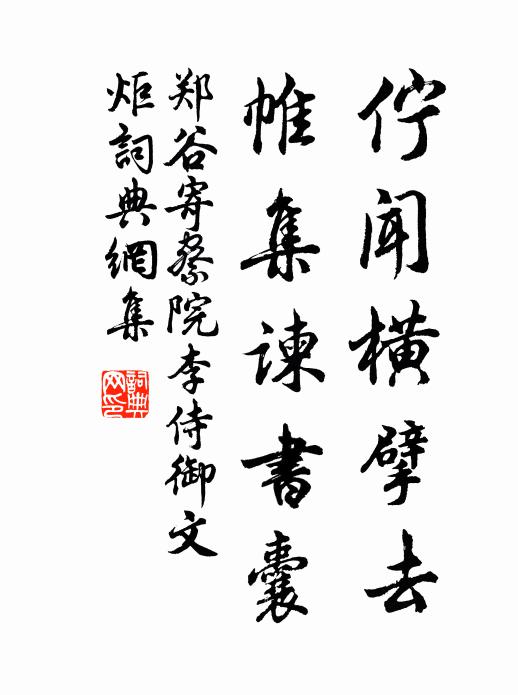 佇闻横擘去
帷集谏書囊
郑谷寄察院李侍御文
炬詞典網集
詞典
网印